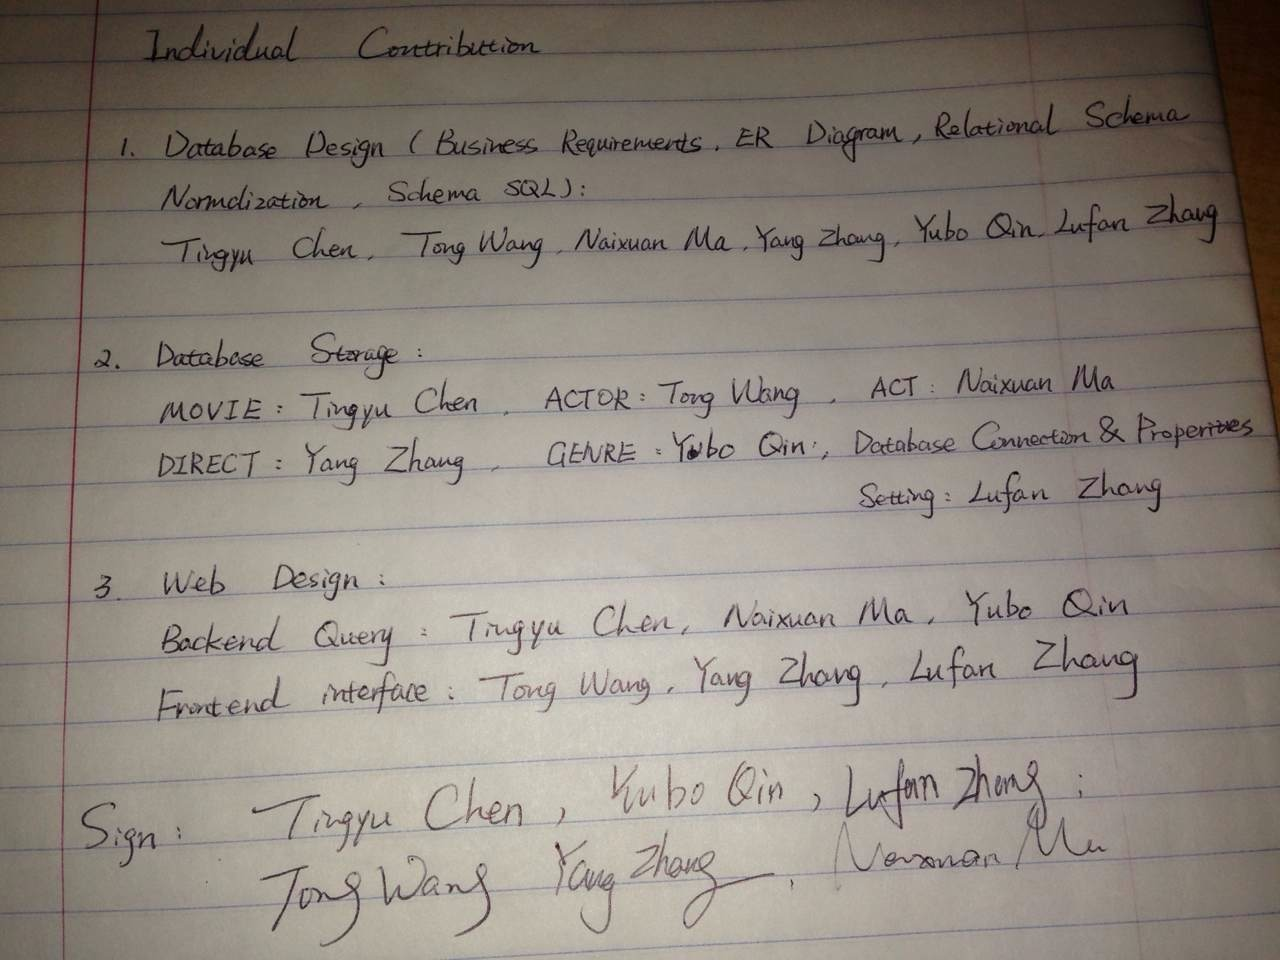 Individual Contribution
1. Database Design ( Business Requirements, ER Diagram, Relational Schema
Normalization, Schema SQL):
Tingyu Chen, Tong Wang, Naixuan Ma, Yang Zhang, Yubo Qin, Lufan Zhang
2. Database Storage:
MOVIE: Tingyu Chen, ACTOR: Tong Wang, ACT: Naixuan Ma
DIRECT: Yang Zhang, GENRE: Yubo Qin, Database Connection & Properities
Setting: Lufan Zhang
3. Web Design:
Backend Query: Tingyu Chen, Naixuan Ma, Yubo Qin
Frontend interface: Tong Wang, Yang Zhang, Lufan Zhang
Sign: Tingyu Chen, Yubo Qin, Lufan Zhang;
Tong Wang Yang Zhang, Naixuan Ma